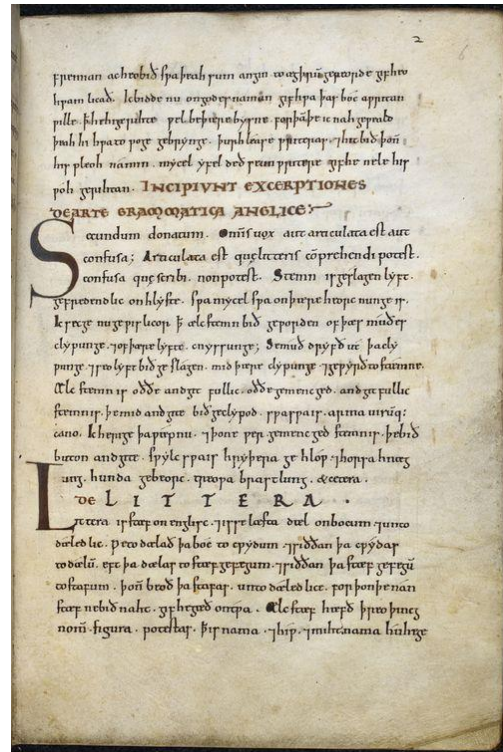 2
fremman ac hƿæðre sƿa þeah sum angin to æghƿilcum geƿeorde gif hit
ham licað. Ic bidde nu on godes naman gif hƿa þas boc aƿritan
ƿille þ he hi gerihte ƿel be þære bysne. forþan þe ic nah geƿeald
þeah hi hƿa to ƿoge gebringe. þurh lease ƿriteras ⁊ hit bið þonne
his pleoh na min. mycel yfel deð se unƿritere gif he nele his
ƿoh gerihtan. INCIPIUNT EXCERPTIONES
DE ARTE GRAMMATICA ANGLICE:
Secundum donatum. Omnis uox aut articulata est aut
confusa; Articulata est quę litteris cōprehendi potest.
confusa quę scribi non potest. Stemn is geslagen lyft.
gefredendlic on hlyste. sƿa mycel sƿa on þære heorcnunge is.
Ic secge nu geƿislicor þ ælc stemn bið geƿorden of þæs muðes
clypunge. ⁊ of þære lyfte cnyssunge; Se muð dryfð ut þa cly
punge. ⁊ seo lyft bið geslagen. mid þære clypunge ⁊ geƿyrð to stemne.
Ælc stemn is oððe andgitfullic. oððe gemenced. andgitfullic
stemn is. þe mid andgite bið geclypod. sƿa sƿa is. arma uirūq;
cano. Ic herige þa ƿæpnu. ⁊ þone ƿer. gemencged stemn is. þe bið
buton andgite. sƿylc sƿa is hryþera gehlop. ⁊ horsa hnæg
ung. hunda gebeorc. treoƿa brastlung. & cetera.
DE LITTERA.
Littera is stæf on englisc. ⁊ is se læsta dæl on bocum ⁊ unto
dæledlic. Ƿe todælað þa boc to cƿydum. ⁊ siððan þa cƿydas
to dælū. eft þa dælas to stæfgefegum. ⁊ siððan þa stæfgefegu
to stafum. þonñ beoð þa stafas. untodæledlice. for þon þe nan
stæf ne bið naht. gif he gæð on tƿa. Ælc stæf hæfð þreo þincg
nomñ. figura. potestas. þ is nama. ⁊ hiƿ. ⁊ miht. nama hu he ge